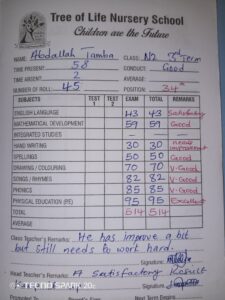 Tree of Life Nursery School
Children are the Future
NAME: Abdallah Jamba CLASS: N2 3rd Term
TIME PRESENT: 58 CONDUCT: Good
TIME ABSENT: 2 AVERAGE:
NUMBER OF ROLL: 45 POSITION: 34th
SUBJECTS TEST 1 TEST 2 EXAM TOTAL REMARKS
ENGLISH LANGUAGE 43 43 Satisfactory
MATHEMATICAL DEVELOPMENT 59 59 Good
INTEGRATED STUDIES - - -
HAND WRITING 30 30 needs improvement
SPELLINGS 50 50 Good
DRAWING / COLOURING 70 70 V-Good
SONGS / RHYMES 82 82 V-Good
PHONICS 85 85 V-Good
PHYSICAL EDUCATION (PE) 95 95 Excellent
TOTAL 514 514
AVERAGE
Class Teacher's Remarks: He has improve a bit
but still needs to work hard.
Signature:
Head Teacher's Remarks: A Satisfactory Result
Signature:
TECNO SPARK 20c
Next Term Begins